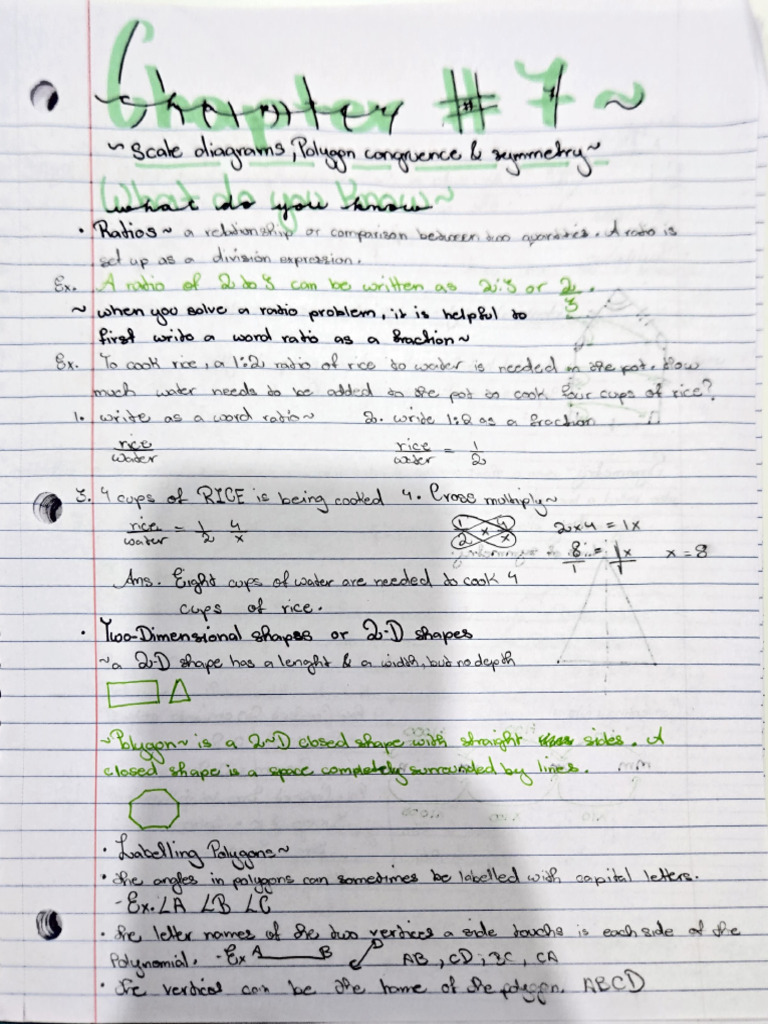 Chapter # 7 ~
~ Scale diagrams, Polygon congruence & symmetry ~
What do you know ~
• Ratios ~ a relationship or comparison between two quantities. A ratio is
set up as a division expression.
Ex. A ratio of 2 to 3 can be written as 2:3 or 2/3.
~ when you solve a ratio problem, it is helpful to
first write a word ratio as a fraction ~
Ex. To cook rice, a 1:2 ratio of rice to water is needed in the pot. How
much water needs to be added to the pot to cook four cups of rice?
1. write as a word ratio ~ 2. write 1:2 as a fraction
rice/water rice/water = 1/2
3. 4 cups of RICE is being cooked 4. Cross multiply ~
rice/water = 1/2 4/x 1/2 x 4/x 2x4 = 1x
8/1 = 1x/1 x = 8
Ans. Eight cups of water are needed to cook 4
cups of rice.
• Two-Dimensional shapes or 2-D shapes
~ a 2-D shape has a lenght & a width, but no depth
~ Polygon ~ is a 2~D closed shape with straight sides. A
closed shape is a space completely surrounded by lines.
• Labelling Polygons ~
• the angles in polygons can sometimes be labelled with capital letters.
- Ex. ∠A ∠B ∠C
• the letter names of the two vertices a side touchs is each side of the
Polynomial. - Ex A B D AB, CD, BC, CA
• the vertical can be the name of the polygon. ABCD